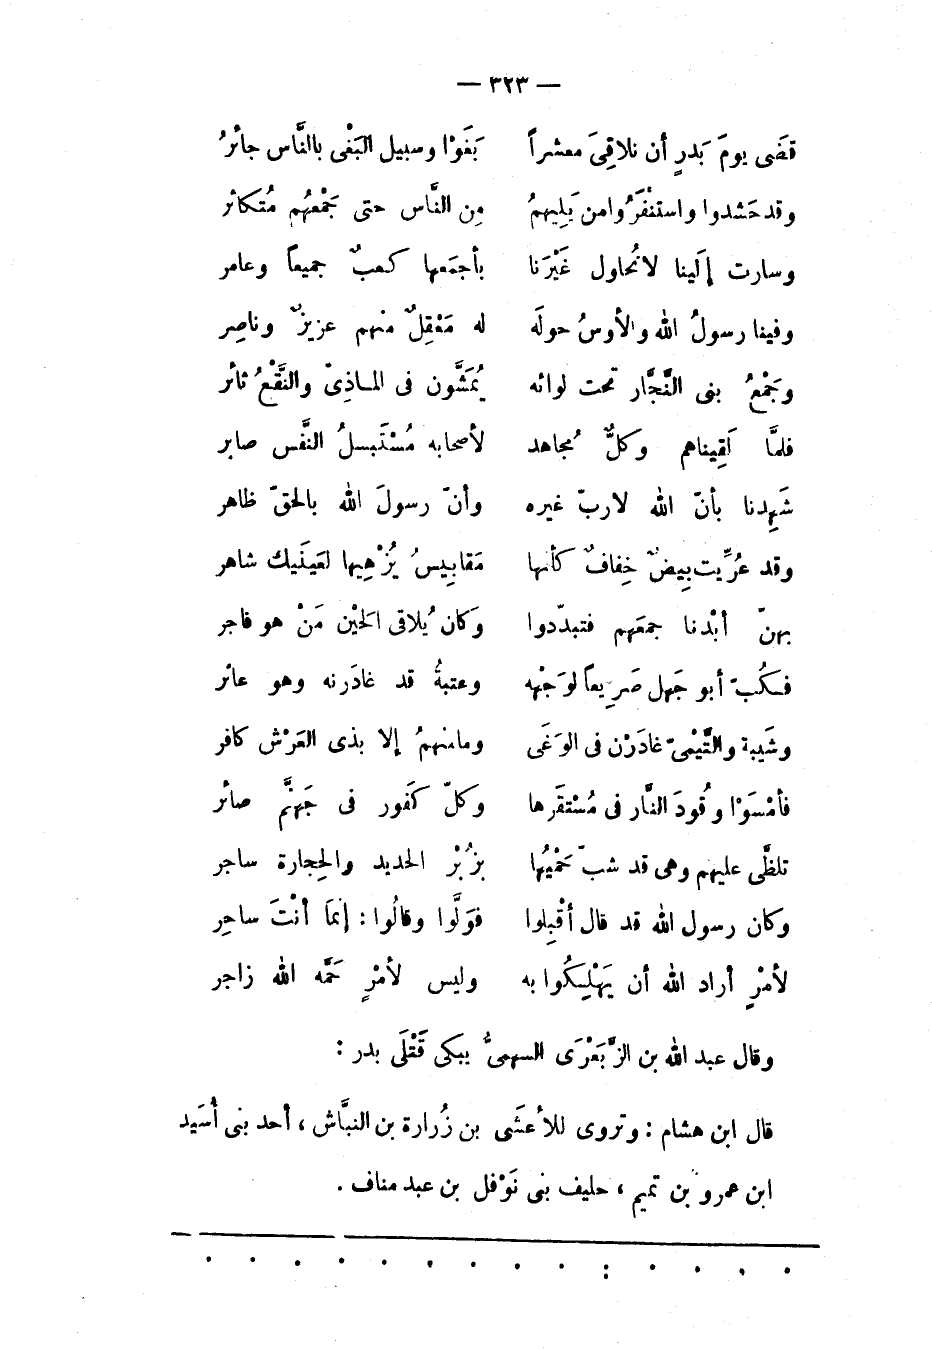 — ٣٢٣ —
قضَى يومَ بَدرٍ أن نلاقِىَ معشراً بَغَوْا وسبيل البَغْى بالنَّاس جائرُ
وقد حَشدوا واستنْفَرُوا من يَلِيهمُ مِن النَّاس حتى جَمْعهُم مُتكاثر
وسارت إلَينا لا تُحاول غَيْرَنا بأجمَعها كعبٌ جميعاً وعامر
وفينا رسولُ الله والأوسُ حولَه له مَعْقِلٌ منهم عزيزٌ وناصِر
وجَمْعُ بنى النَّجَّار تحت لوائه يُمَشَّون فى الماذِىّ والنَّقْعُ ثائر
فلمَّا لَقِيناهم وكلٌّ مُجاهد لأصحابه مُسْتَبسلُ النَّفس صابر
شَهِدنا بأنّ الله لا ربّ غيره وأنّ رسولَ الله بالحقّ ظاهر
وقد عُرِّيت بِيضٌ خِفافٌ كأنها مَقابِيسُ يُزْهِيها لعَينَيك شاهر
بهنّ أبْدنا جمعَهم فتبدّدوا وَكان يُلاقى الحَيْن مَنْ هو فاجر
فكُبّ أبو جَهل صَرِيعاً لوَجْهه وعتبةُ قد غادَرنه وهو عاثر
وشَيبة والتَّيْمىّ غادَرْن فى الوَغَى ومامنهمُ إلا بذى العَرْش كافر
فأمْسَوْا وقُودَ النَّار فى مُسْتقَرها وكلّ كَفور فى جَهنَّم صائر
تلظَّى عليهم وهى قد شبّ حَمْيُها بزُبْر الحديد والحِجارة ساجر
وكان رسول الله قد قال أقْبِلوا فوَلَّوا وقالُوا : إنمَا أنْتَ ساحِر
لأمْرٍ أراد الله أن يَهْلِكُوا به وليس لأمْرٍ حَمَّه الله زاجر
وقال عبد الله بن الزَّبَعْرَى السهمىُّ يبكى قَتْلَى بدر :
قال ابن هشام : وتروى للأعشَى بن زُرارة بن النبَّاش ، أحد بنى أُسَيد
ابن عمرو بن تميم ، حليف بنى نَوْفل بن عبد مناف .